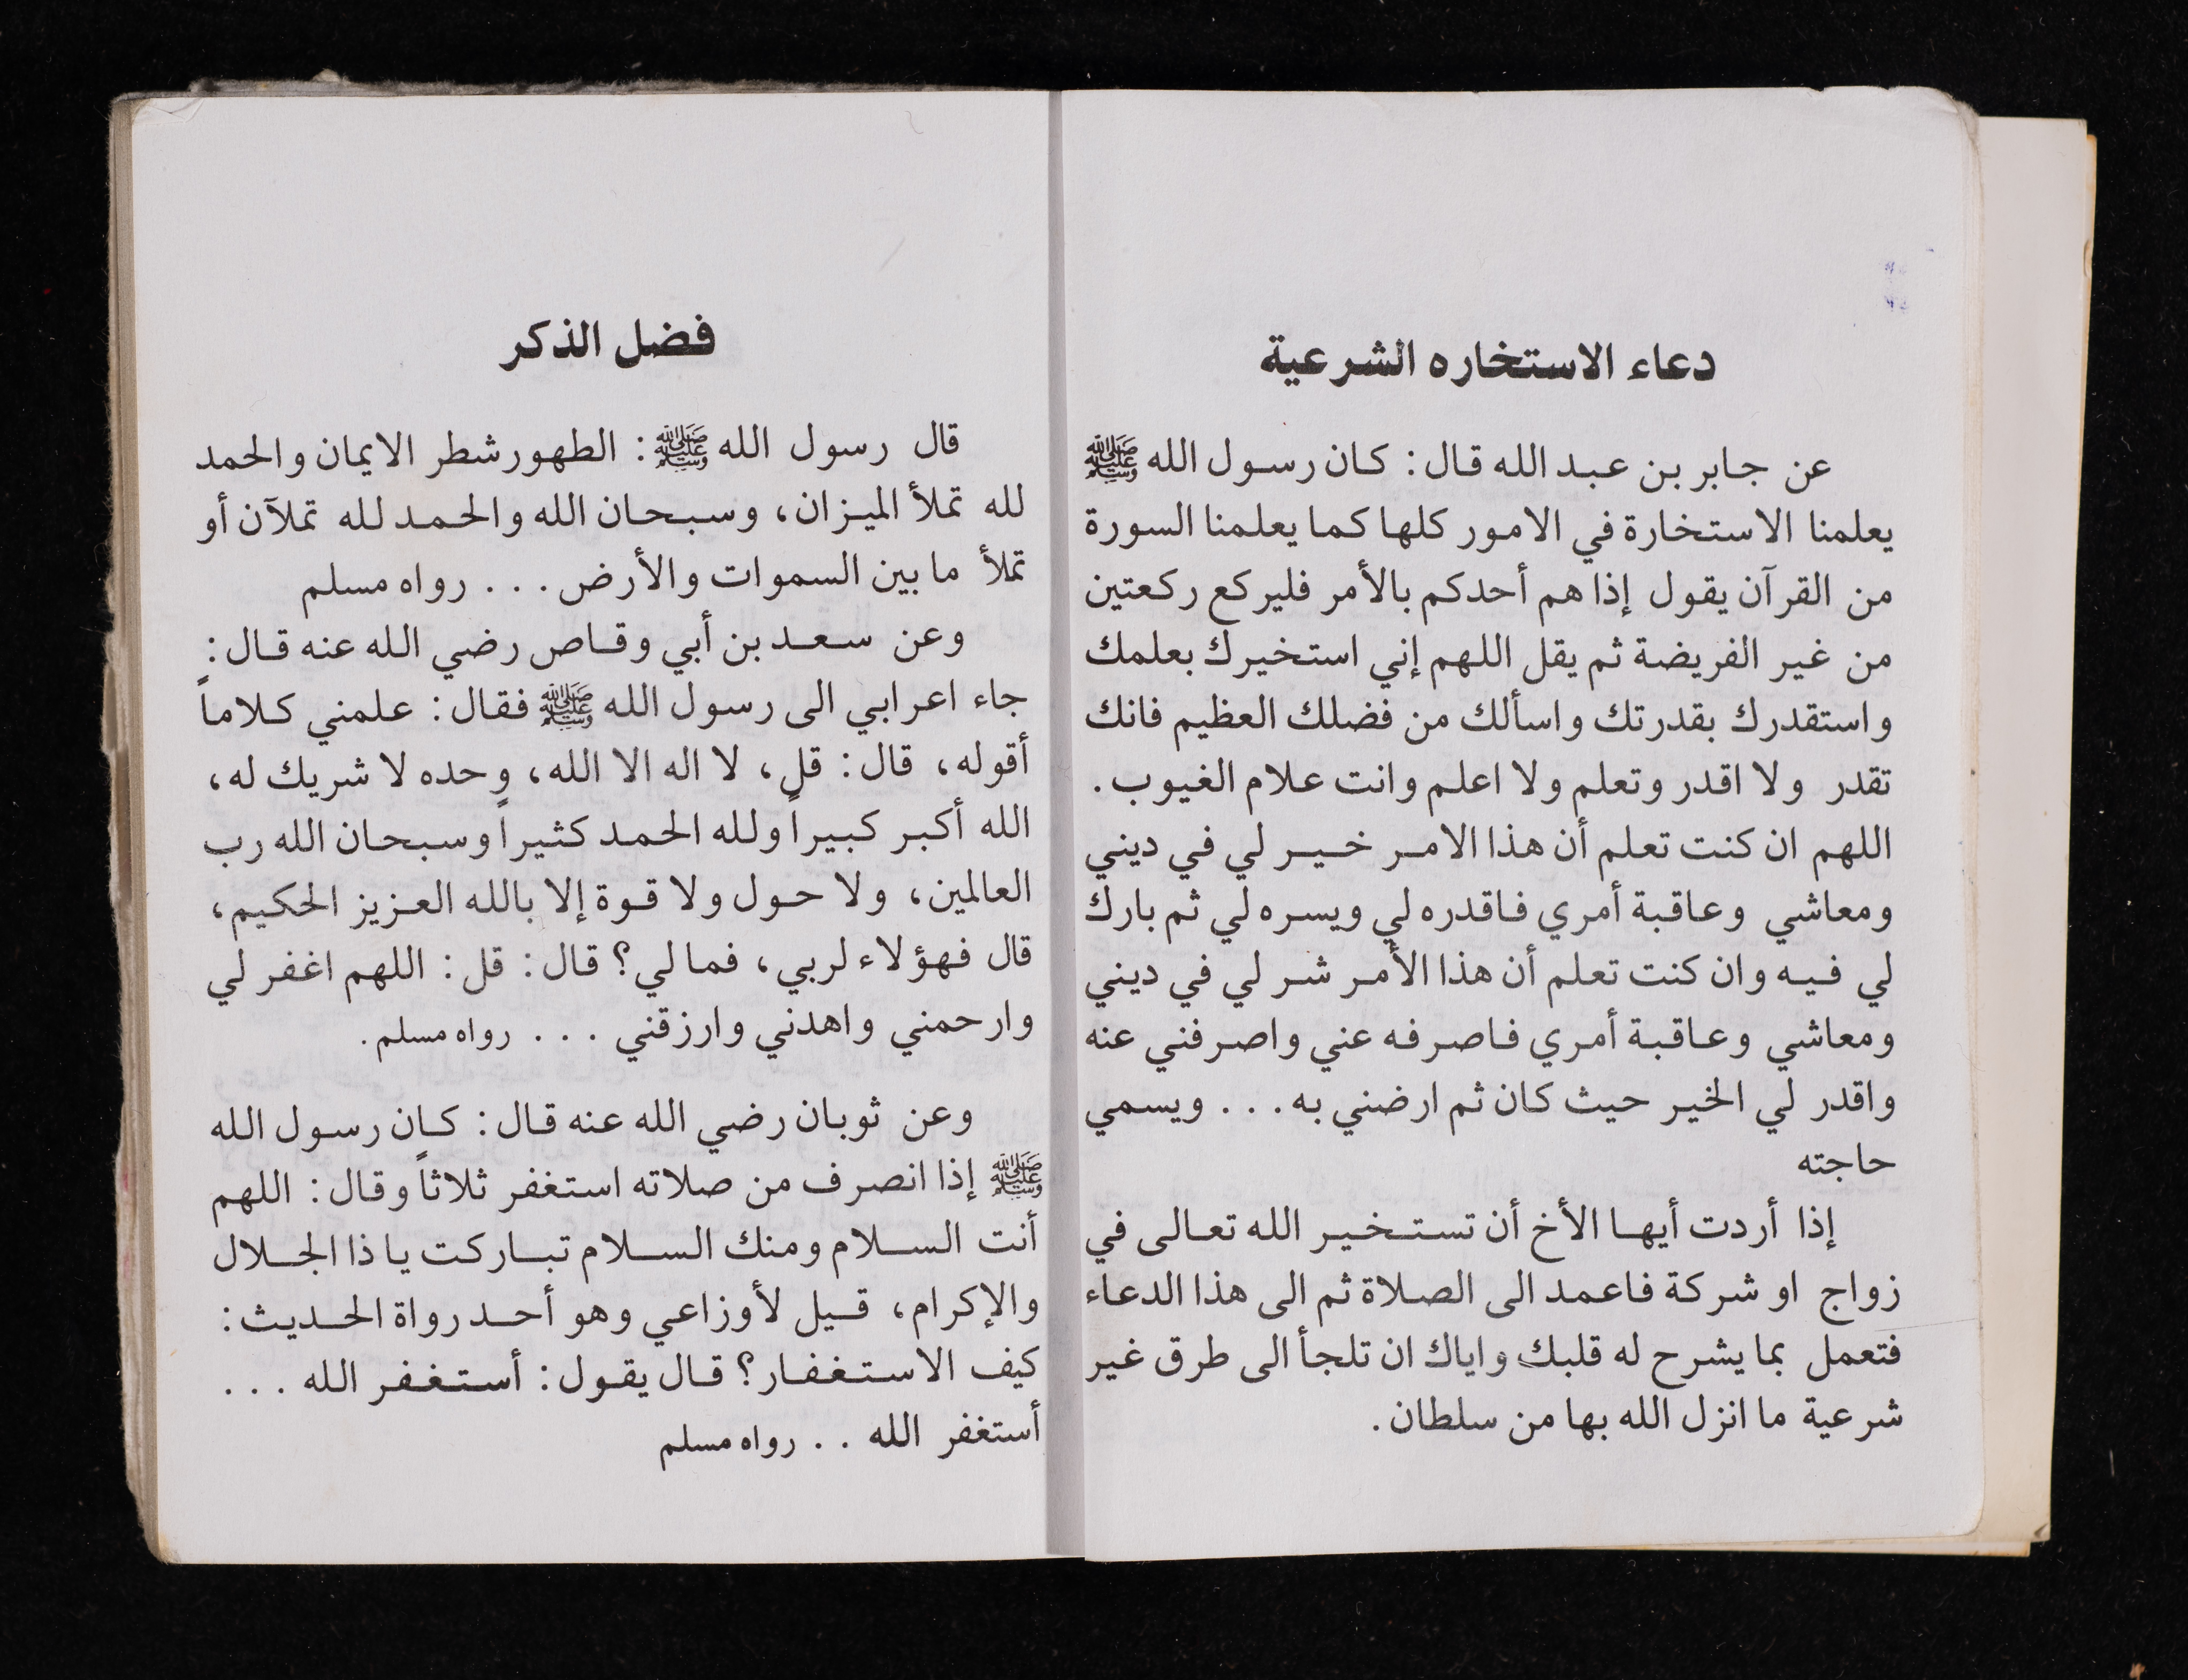 دعاء الاستخاره الشرعية
عن جابر بن عبد الله قال: كان رسول الله ﷺ
يعلمنا الاستخارة في الامور كلها كما يعلمنا السورة
من القرآن يقول إذا هم أحدكم بالأمر فليركع ركعتين
من غير الفريضة ثم يقل اللهم إني استخيرك بعلمك
واستقدرك بقدرتك واسألك من فضلك العظيم فانك
تقدر ولا اقدر وتعلم ولا اعلم وانت علام الغيوب.
اللهم ان كنت تعلم أن هذا الامر خير لي في ديني
ومعاشي وعاقبة أمري فاقدره لي ويسره لي ثم بارك
لي فيه وان كنت تعلم أن هذا الأمر شر لي في ديني
ومعاشي وعاقبة أمري فاصرفه عني واصرفني عنه
واقدر لي الخير حيث كان ثم ارضني به... ويسمي
حاجته
إذا أردت أيها الأخ أن تستخير الله تعالى في
زواج او شركة فاعمد الى الصلاة ثم الى هذا الدعاء
فتعمل بما يشرح له قلبك واياك ان تلجأ الى طرق غير
شرعية ما انزل الله بها من سلطان.
فضل الذكر
قال رسول الله ﷺ: الطهور شطر الايمان والحمد
لله تملأ الميزان، وسبحان الله والحمد لله تملآن أو
تملأ ما بين السموات والأرض... رواه مسلم
وعن سعد بن أبي وقاص رضي الله عنه قال:
جاء اعرابي الى رسول الله ﷺ فقال: علمني كلاماً
أقوله، قال: قل، لا اله الا الله، وحده لا شريك له،
الله أكبر كبيراً ولله الحمد كثيراً وسبحان الله رب
العالمين، ولا حول ولا قوة إلا بالله العزيز الحكيم،
قال فهؤلاء لربي، فما لي؟ قال: قل: اللهم اغفر لي
وارحمني واهدني وارزقني ... رواه مسلم.
وعن ثوبان رضي الله عنه قال: كان رسول الله
ﷺ إذا انصرف من صلاته استغفر ثلاثاً وقال: اللهم
أنت السلام ومنك السلام تباركت يا ذا الجلال
والإكرام، قيل لأوزاعي وهو أحد رواة الحديث:
كيف الاستغفار؟ قال يقول: أستغفر الله ...
أستغفر الله .. رواه مسلم